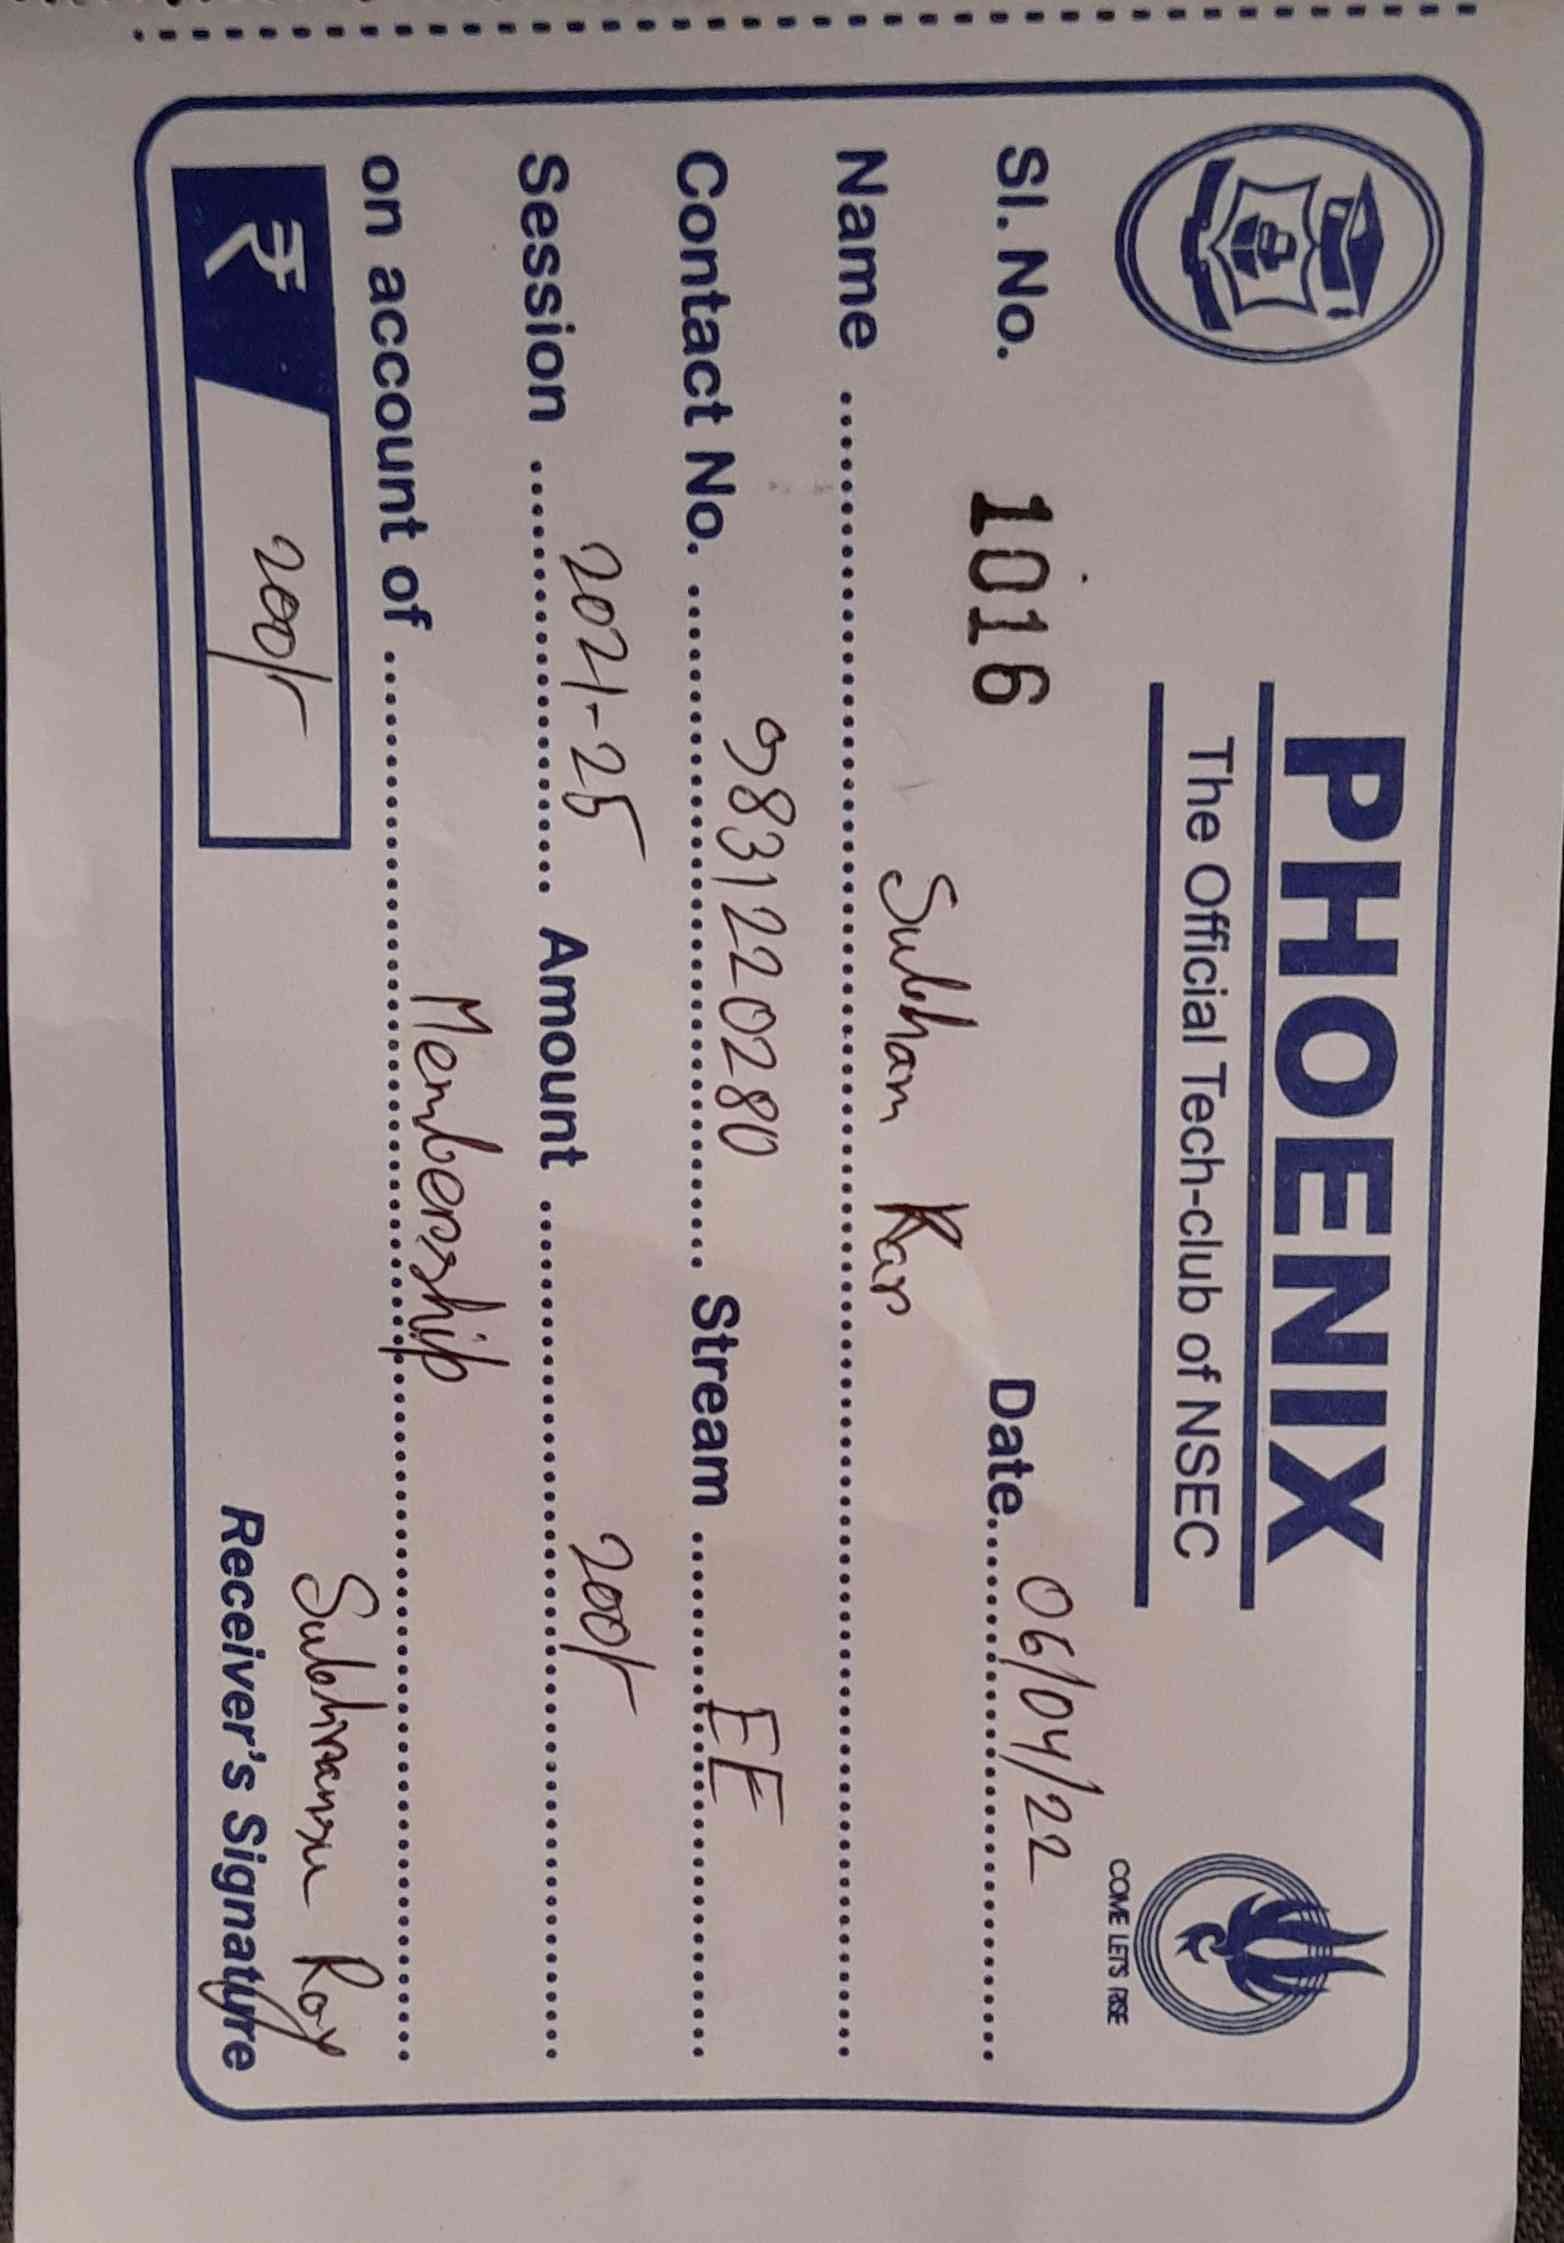 PHOENIX
The Official Tech-club of NSEC
COME LET'S RISE
Sl. No. 1016 Date 06/04/22
Name Subham Kar
Contact No. 9831220280 Stream EE
Session 2021-25 Amount 200/-
on account of Membership
₹ 200/-
Subhransu Roy
Receiver's Signature